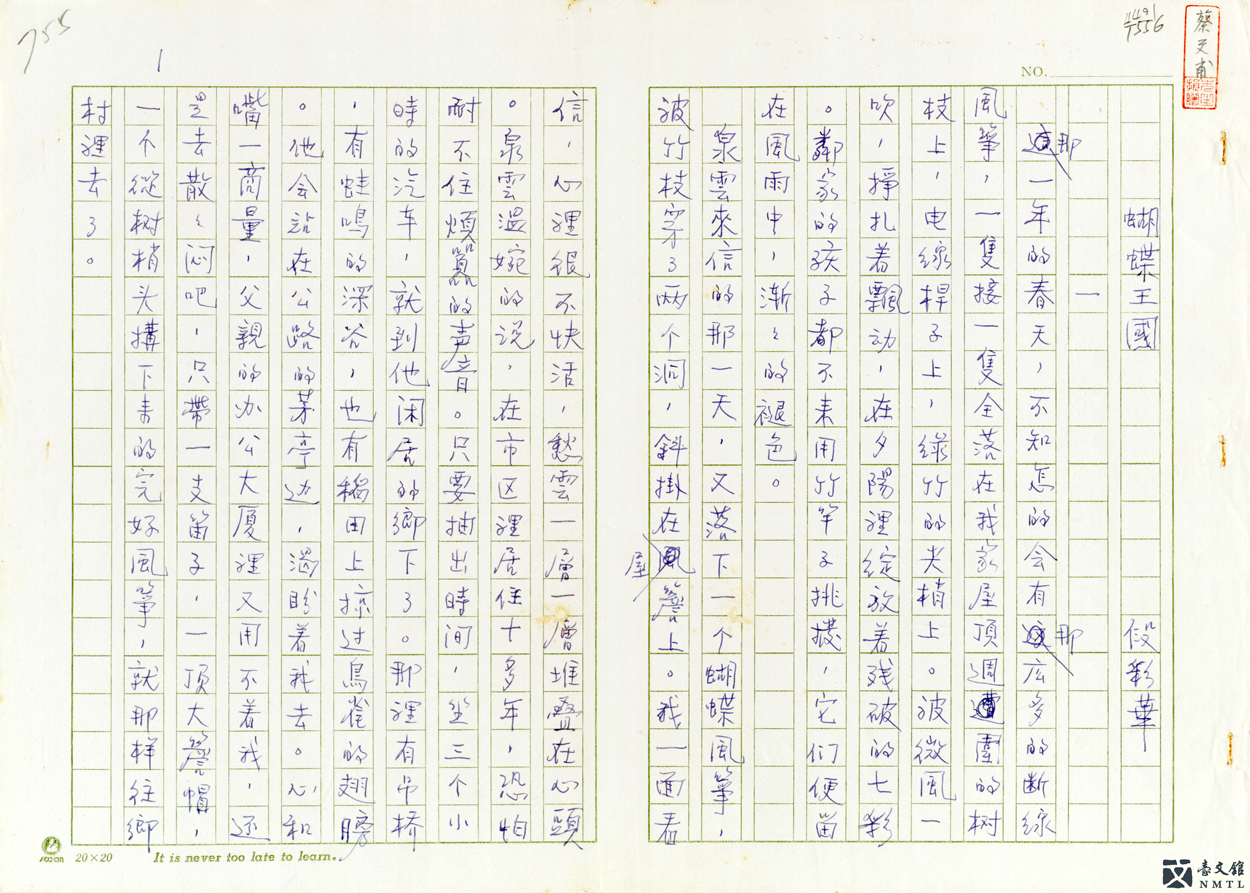 755
1
4491
7556
蔡文甫
NO.
蝴蝶王國 段彩華
一
那一年的春天,不知怎的会有那広多的断線
風箏,一隻接一隻全落在我家屋頂週圍的树
枝上,电線桿子上,綠竹的尖梢上。被微風一
吹,掙扎着飄动,在夕陽裡綻放着残破的七彩
。鄰家的孩子都不来用竹竿子挑撥,它们便留
在風雨中,漸々的褪色。
泉雲來信的那一天,又落下一个蝴蝶風箏,
被竹枝穿了两个洞,斜掛在屋簷上。我一面看
信,心裡很不快活,愁雲一層一層堆叠在心頭
。泉雲溫婉的说,在市区裡居住十多年,恐怕
耐不住煩囂的声音。只要抽出時间,坐三个小
時的汽车,就到他闲居的鄉下了。那裡有吊桥
,有蛙鳴的深谷,也有稻田上掠过鳥雀的翅膀
。他会站在公路的茅亭边,渴盼着我去。心和
嘴一商量,父親的办公大厦裡又用不着我,还
是去散々闷吧,只帶一支笛子,一頂大簷帽,
一个從树梢头搆下来的完好風箏,就那样往鄉
村裡去了。
20×20 It is never too late to learn.
臺文館
NMTL